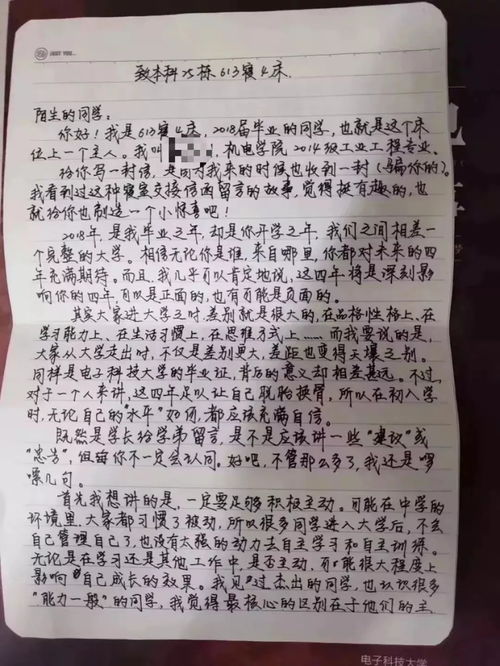 致本科25栋613寝4床
陌生的同学:
你好!我是613寝4床,2018届毕业的同学,也就是这个床
位上一个主人。我叫 ,机电学院2014级工业工程专业。
给你写一封信,是因为我来的时候也收到一封(骗你的)。
我看到过这种寝室交换信函留言的故事,觉得挺有趣的,也
就给你也制造一个小惊喜吧!
2018年,是我毕业之年,却是你开学之年,我们之间相差一
个完整的大学。相信无论你是谁,来自哪里,你都对未来的四
年充满期待。而且我几乎可以肯定地说,这四年将是深刻影
响你的四年,可以是正面的,也有可能是负面的。
其实大家进大学之时,差别就是很大的,在品格个性格上、在
学习能力上、在生活习惯上,在思维方式上……而我要说的是,
大家从大学走出时,不仅是差别更大,差距也更得天壤之别。
同样是电子科技大学的毕业证,背后的意义却相差甚远。不过,
对于一个人来讲,这四年足以让自己脱胎换骨,所以在初入学
时,无论自己的水平如何,都应该充满自信。
既然是学长给学弟留言,是不是应该讲一些"建议"或
"忠告",但每你不一定会认同。好吧,不管那么多了,我还是啰
嗦几句。
首先我想讲的是,一定要足够积极主动。可能在中学的
环境里,大家都习惯了被动,所以很多同学进入大学后,不会
自己管理自己了,也没有太强的动力去自主学习和自主训练。
无论是在学习还是其他工作中,是否主动,可能很大程度上
影响自己成长的效果。我见过杰出的同学,也认识很多
"能力一般"的同学,我觉得最核心的区别在于他们的主
电子科技大学